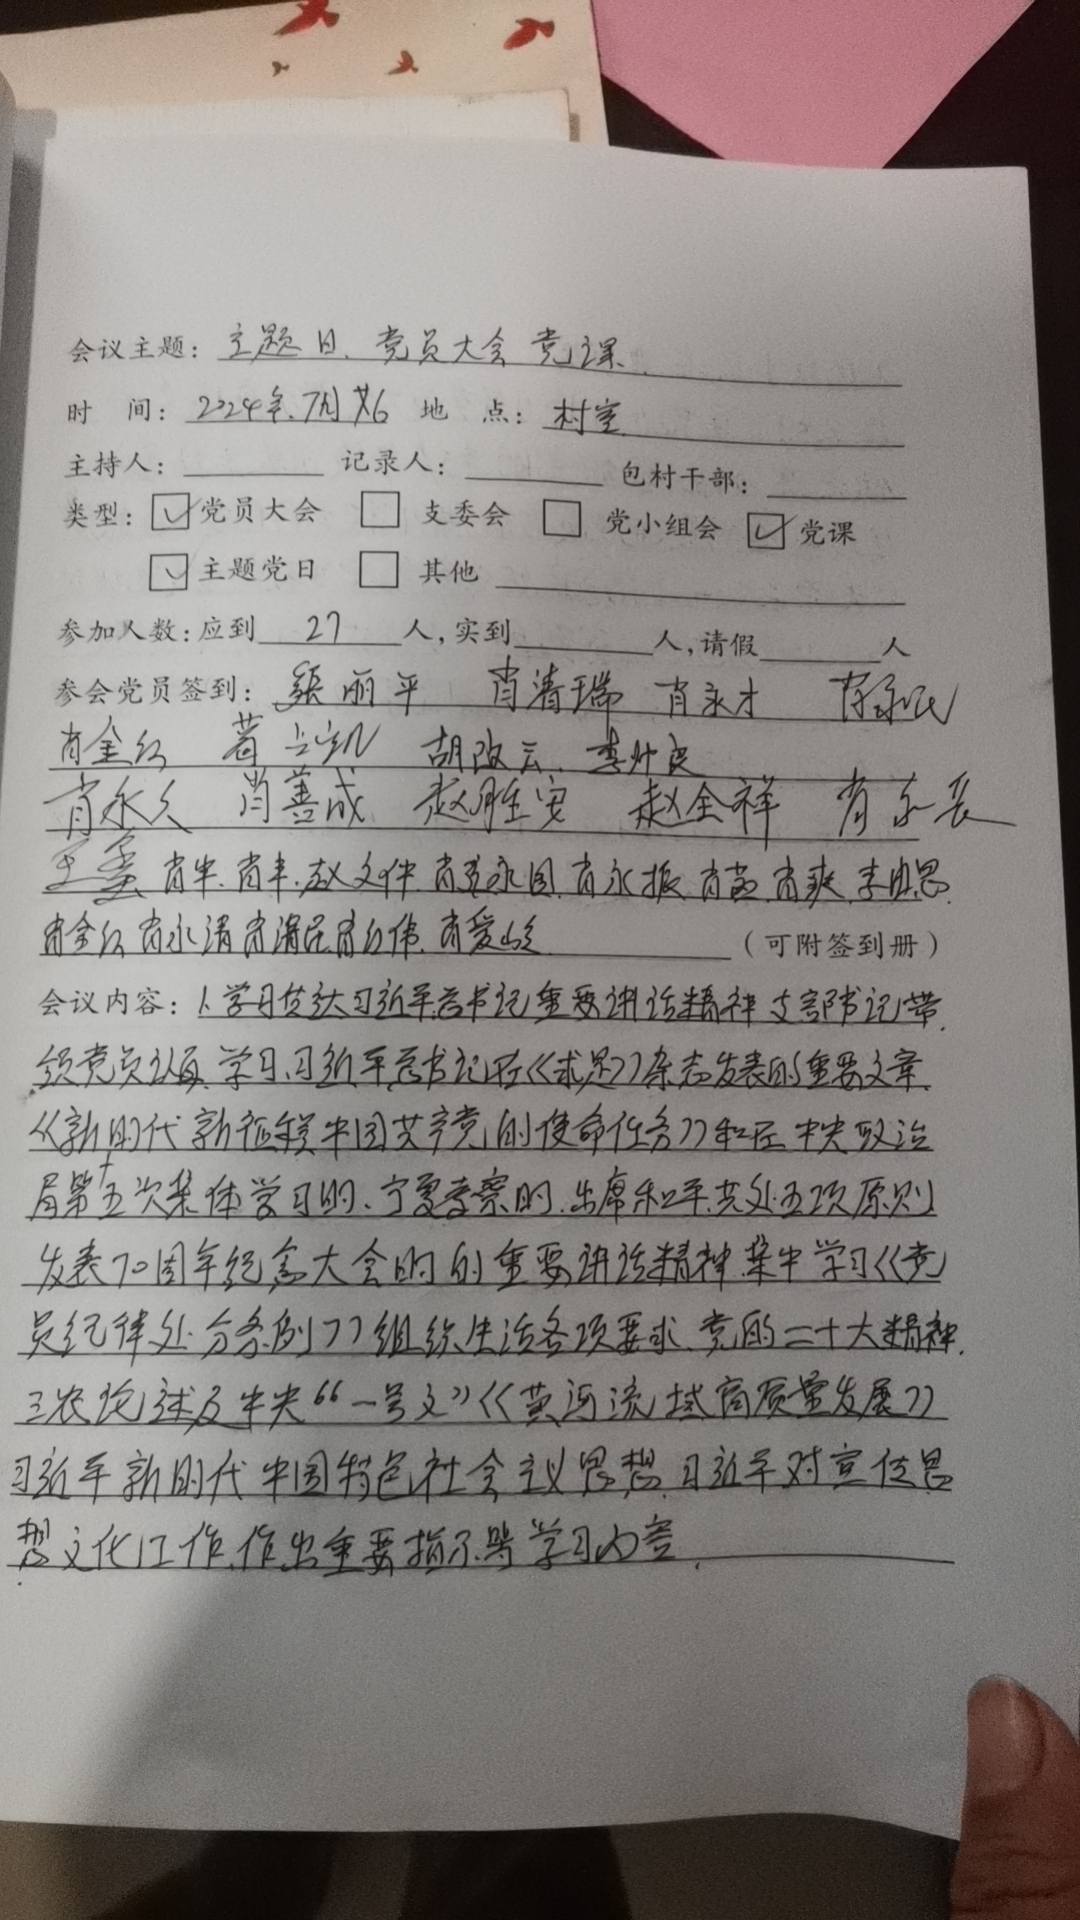 会议主题：主题日、党员大会 党课
时　间：2024年.7月 地　点：村室
主持人： 记录人： 包村干部：
类型：☑党员大会 □支委会 □党小组会 ☑党课
☑主题党日 □其他
参加人数：应到 27 人，实到 人，请假 人
参会党员签到：张丽平 肖清瑞 肖永才
肖金红 胡改云
肖永久 肖善成 赵胜安 赵全祥 肖永长
肖丰 赵文仲 肖永国 肖永振 肖爽
肖金红 肖永清 肖红伟 （可附签到册）
会议内容：1、学习贯彻习近平总书记重要讲话精神 支部书记带
领党员认真学习、习近平总书记在《求是》杂志发表的重要文章
《新时代新征程中国共产党的使命任务》和在中央政治
局第十五次集体学习时、宁夏考察时、出席和平共处五项原则
发表70周年纪念大会时的重要讲话精神.集中学习《党
员纪律处分条例》组织生活各项要求、党的二十大精神.
三农论述及中央“一号文”《黄河流域高质量发展》
习近平新时代中国特色社会主义思想 习近平对宣传思
想文化工作.作出重要指示等学习内容.